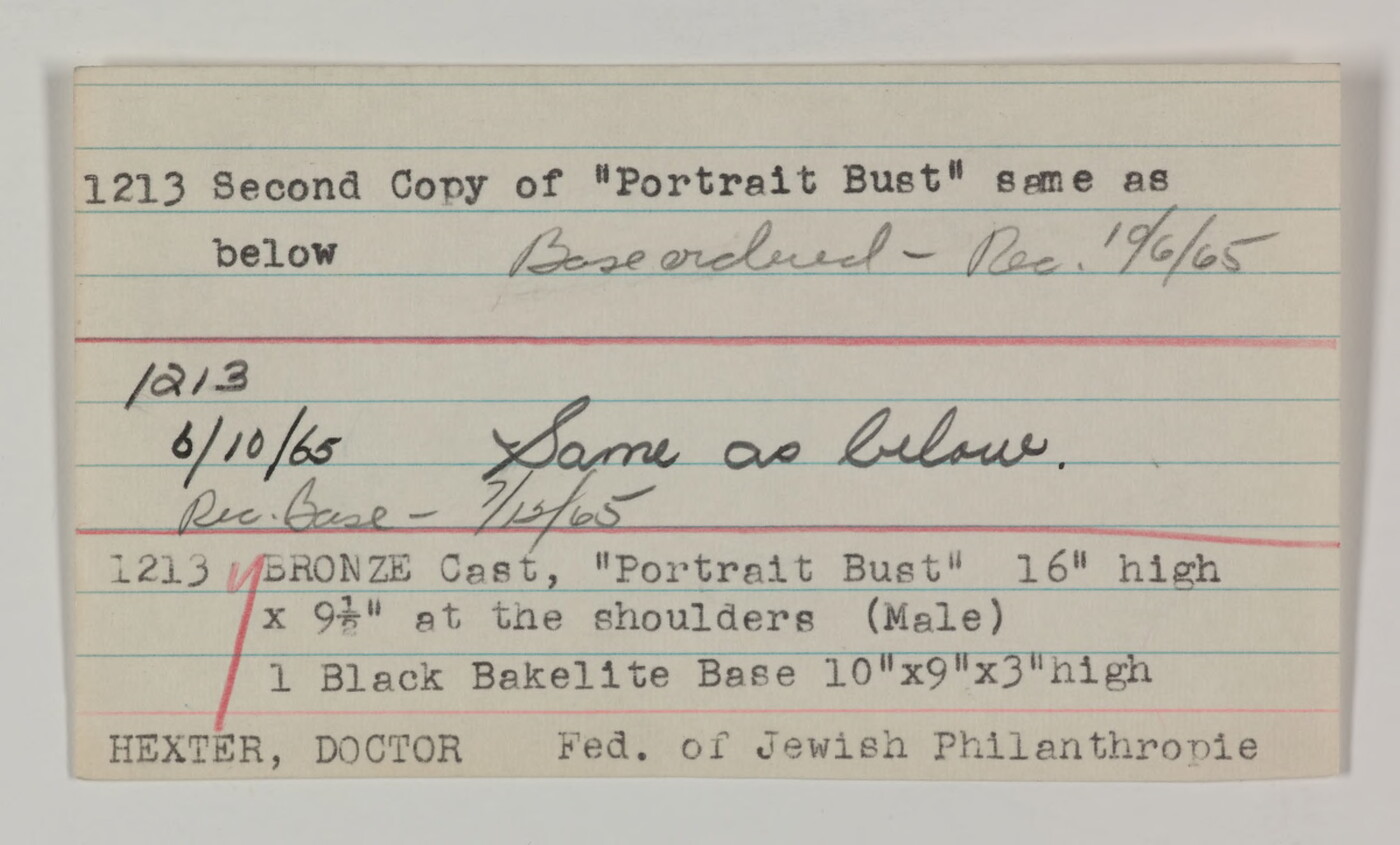 1213 Second Copy of "Portrait Bust" same as
below Base ordered - Rec. 10/6/65
1213
6/10/65 Same as below.
Rec. Base - 7/15/65
1213 BRONZE Cast, "Portrait Bust" 16" high
x 9½" at the shoulders (Male)
1 Black Bakelite Base 10"x9"x3"high
HEXTER, DOCTOR Fed. of Jewish Philanthropie